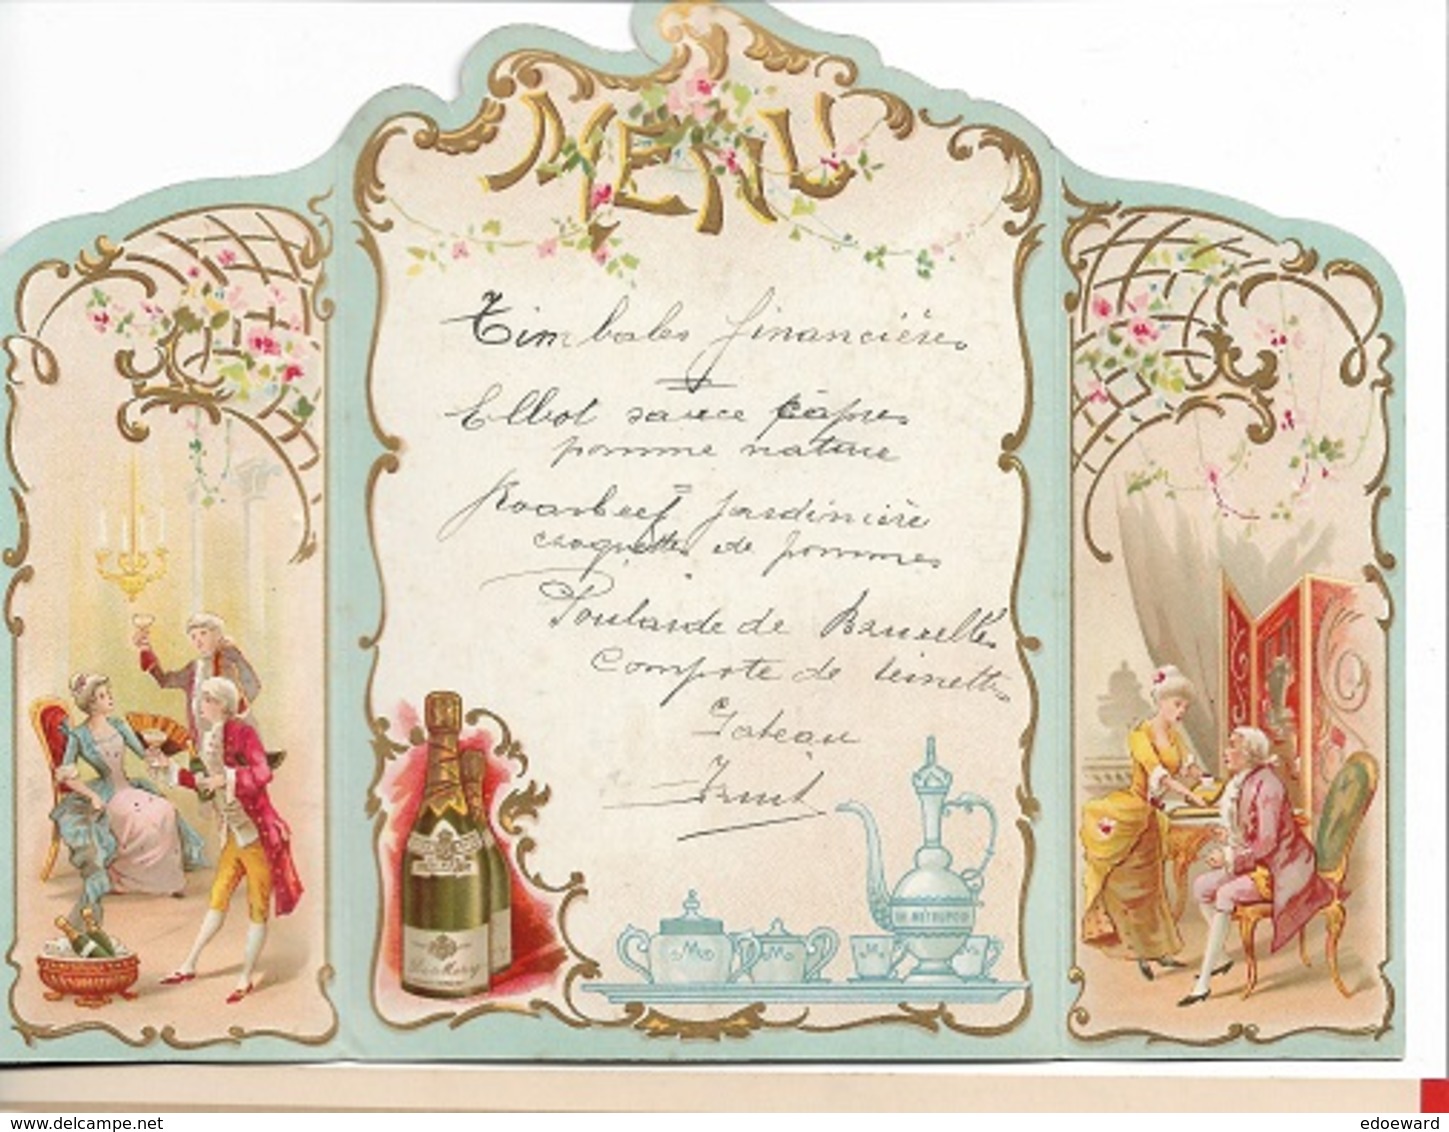 MENU
Timbales financières
Elbot sauce câpres
pomme nature
Roasbeef jardinière
croquettes de pommes
Poularde de Bruxelles
Compote de reinettes
Gateau
Fruit
LE METROPOLE
M M M M
website: www.delcampe.net
edoeward